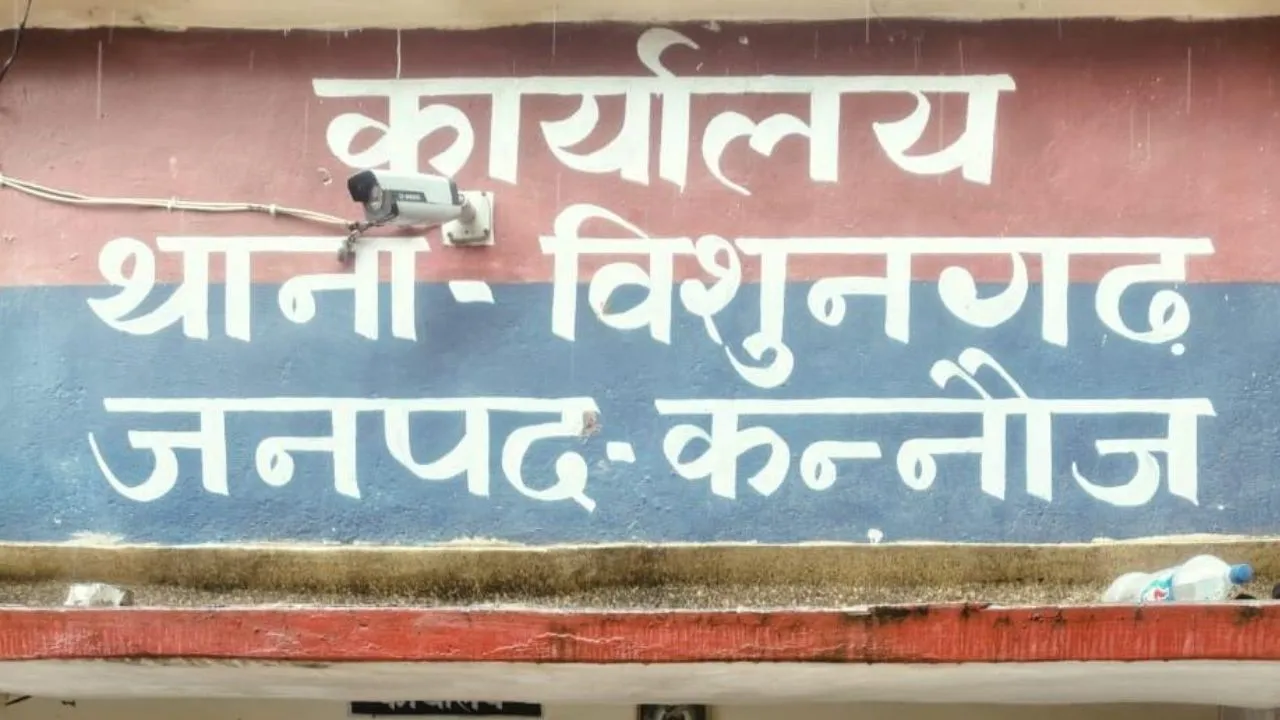 कार्यालय
थाना - विशुनगढ़
जनपद - कन्नौज
कार्यालय